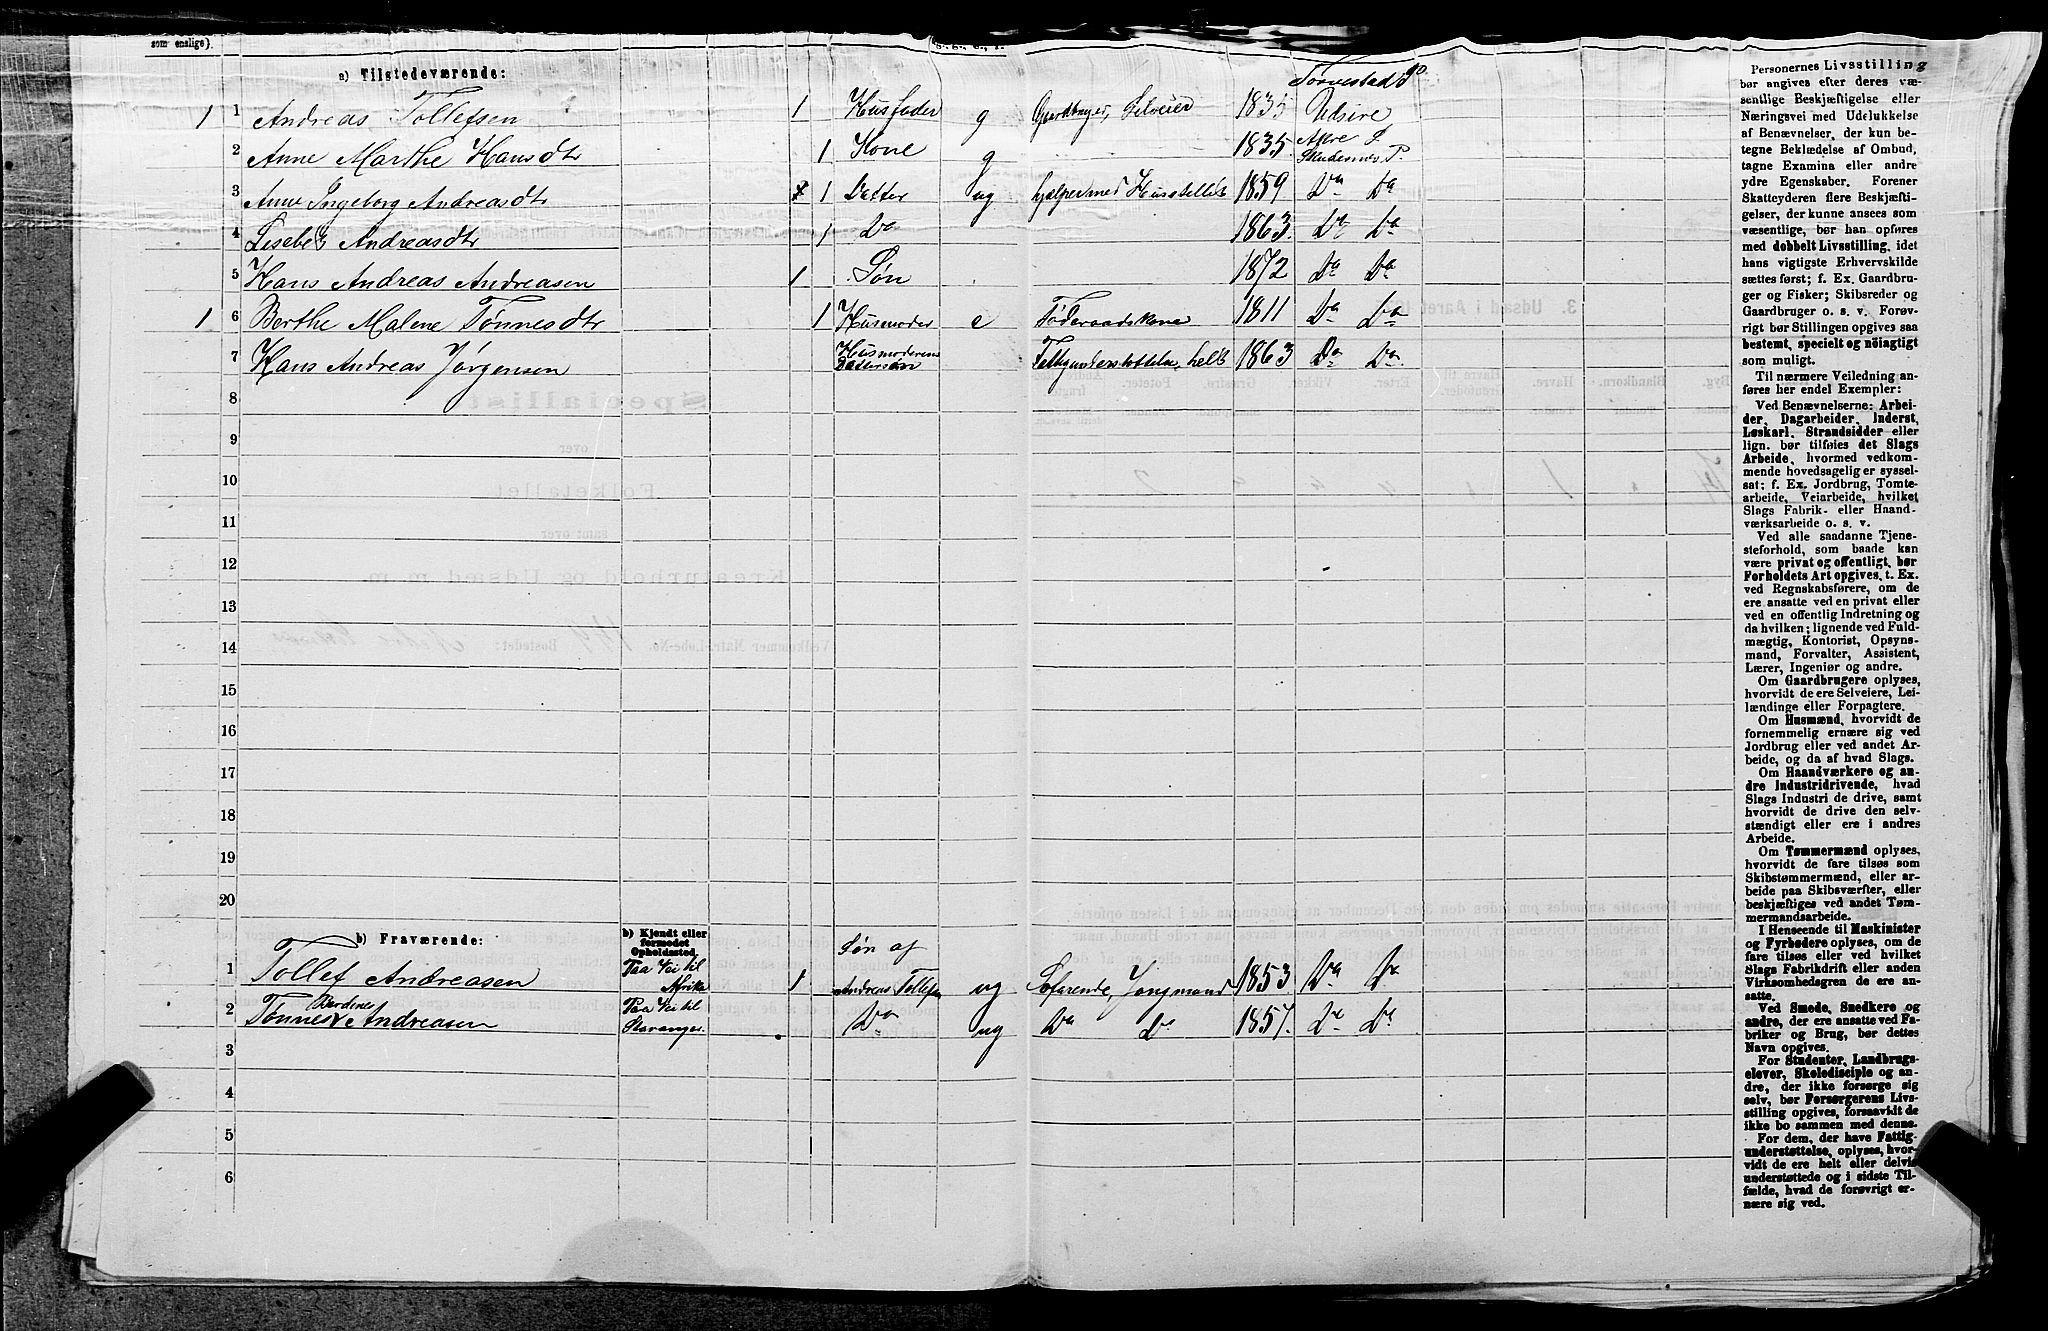 som enslige).
a) Tilstedeværende:
Torvestad P.
1 1 Andreas Tollefsen 1 Husfader g Gardbruger, Selveier 1835 Udsire
2 Anne Marthe Hansdtr 1 Kone g 1835 Skudenes P.
3 Anne Ingeborg Andreasdtr 1 Datter ug hjelper med Husstellet 1859 Do Do
4 Lisebet Andreasdtr 1 Do 1863. Do Do
5 Hans Andreas Andreasen 1 Søn 1872 Do Do
1 6 Berthe Malene Tønnesdtr 1 Husmoder e Føderaadskone 1811 Do Do
7 Hans Andreas Jørgensen Husmoderens Dattersøn helt 1863 Do Do
8
9
10
11
12
13
14
15
16
17
18
19
20
b) Fraværende:
b) Kjendt eller
formodet
Opholdssted.
Søn af
1 Tollef Andreasen Paa Vei til Afrika 1 Andreas Tollefsen ug Søfarende, Jungmand 1853 Do Do
2 Tønnes Andreasen Paa Vei til Stavanger Do ug Do Do 1857. Do Do
3
4
5
6
Personernes Livsstilling
bør angives efter deres væ-
sentlige Beskjæftigelse eller
Næringsvei med Udelukkelse
af Benævnelser, der kun be-
tegne Beklædelse af Ombud,
tagne Examina eller andre
ydre Egenskaber. Forener
Skatteyderen flere Beskjæfti-
gelser, der kunne ansees som
væsentlige, bør han opføres
med dobbelt Livsstilling, idet
hans vigtigste Erhvervskilde
sættes først; f. Ex. Gaardbru-
ger og Fisker; Skibsreder og
Gaardbruger o. s. v. Forøv-
rigt bør Stillingen opgives saa
bestemt, specielt og nöiagtigt
som muligt.
Til nærmere Veiledning an-
føres her endel Exempler:
Ved Benævnelserne: Arbei-
der, Dagarbeider, Inderst,
Løskarl, Strandsidder eller
lign. bør tilføies det Slags
Arbeide, hvormed vedkom-
mende hovedsagelig er syssel-
sat; f. Ex. Jordbrug, Tomte-
arbeide, Veiarbeide, hvilket
Slags Fabrik- eller Haand-
værksarbeide o. s. v.
Ved alle saadanne Tjene-
steforhold, som baade kan
være privat og offentligt, bør
Forholdets Art opgives, t. Ex.
ved Regnskabsførere, om de
ere ansatte ved en privat eller
ved en offentlig Indretning og
da hvilken; lignende ved Fuld-
mægtig, Kontorist, Opsyns-
mand, Forvalter, Assistent,
Lærer, Ingeniør og andre.
Om Gaardbrugere oplyses,
hvorvidt de ere Selveiere, Lei-
lændinge eller Forpagtere.
Om Husmænd, hvorvidt de
fornemmelig ernære sig ved
Jordbrug eller ved andet Ar-
beide, og da af hvad Slags.
Om Haandværkere og an-
dre Industridrivende, hvad
Slags Industri de drive, samt
hvorvidt de drive den selv-
stændigt eller ere i andres
Arbeide.
Om Tømmermænd oplyses,
hvorvidt de fare tilsøs som
Skibstømmermænd, eller ar-
beide paa Skibsværfter, eller
beskjæftiges ved andet Tøm-
mermandsarbeide.
I Henseende til Maskinister
og Fyrbødere oplyses, om de
fare tilsøs eller ved hvilket
Slags Fabrikdrift eller anden
Virksomhedsgren de ere an-
satte.
Ved Smede, Snedkere og
andre, der ere ansatte ved Fa-
briker og Brug, bør dettes
Navn opgives.
For Studenter, Landbrugs-
elever, Skoledisciple og an-
dre, der ikke forsørge sig
selv, bør Forsørgerens Livs-
stilling opgives, forsaavidt de
ikke bo sammen med denne.
For dem, der have Fattig-
understøttelse, oplyses, hvor-
vidt de ere helt eller delvis
understøttede og i sidste Til-
fælde, hvad de forøvrigt er-
nære sig ved.